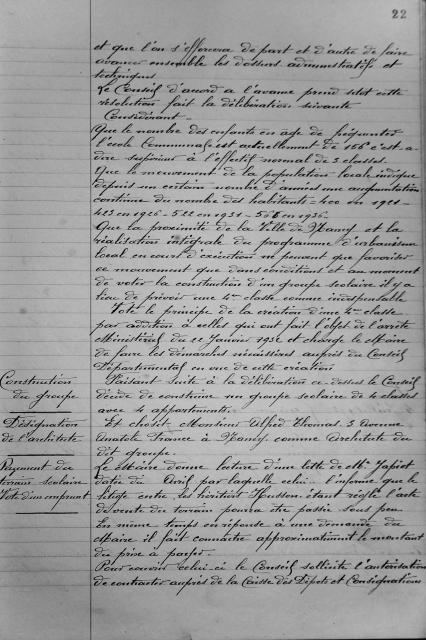 22
et que l'on s'efforcera de part et d'autre de faire
avancer ensemble les dossiers administratifs et
techniques
Le Conseil d'accord a l'avance prend cette
résolution fait la délibération suivante
Considérant -
Que le nombre des enfants en age de fréquenter
l'école Communale est actuellement de 166 c'est-a-
dire supérieur à l'effectif normal de 3 classes.
Que le mouvement de la population locale indique
depuis un certain nombre d'années une augmentation
continue du nombre des habitants = 400 en 1921 -
423 en 1926 - 522 en 1931 - en 1936.
Que la proximité de la Ville de Nancy et la
réalisation intégrale du programme d'urbanisme
local en cours d'exécution ne peuvent que favoriser
ce mouvement que dans conditions et au moment
de voter la construction d'un groupe scolaire il y a
lieu de prévoir une 4me classe comme indispensable
Vote le principe de la création d'une 4me classe
par addition à celles qui ont fait l'objet de l'arrêté
Ministériel du 21 Janvier 1932 et charge le Maire
de faire les démarches nécessaires auprès du Conseil
Départemental en vue de cette création
Construction
du groupe
Faisant suite à la délibération ci-dessus le Conseil
décide de construire un groupe scolaire de 4 classes
avec 4 appartements.
Désignation
de l'architecte
Et choisit Monsieur Alfred Thomas. 3 Avenue
Anatole France à Nancy comme Architecte du
dit groupe.
Payement du
terrain scolaire
Vote d'un emprunt
Le Maire donne lecture d'une lettre de Me Japiot
datée du Avril par laquelle celui-ci l'informe que le
litige entre les héritiers Husson étant réglé l'acte
de vente du terrain pourra être passé sous peu.
En même temps en réponse à une demande du
Maire il fait connaître approximativement le montant
du prix à payer.
Pour couvrir celui-ci le Conseil sollicite l'autorisation
de contracter auprès de la Caisse des Dépôts et Consignations